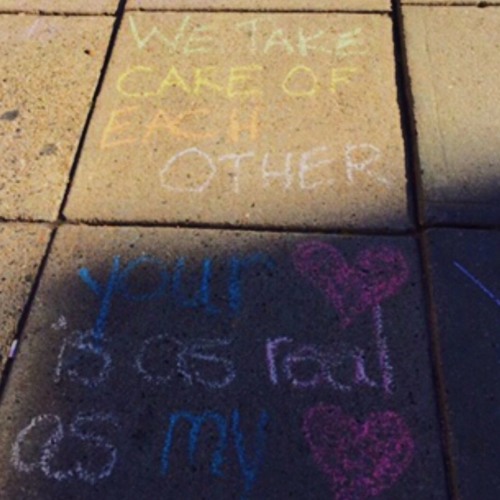 WE TAKE
CARE OF
EACH
OTHER
your
is as real
as my